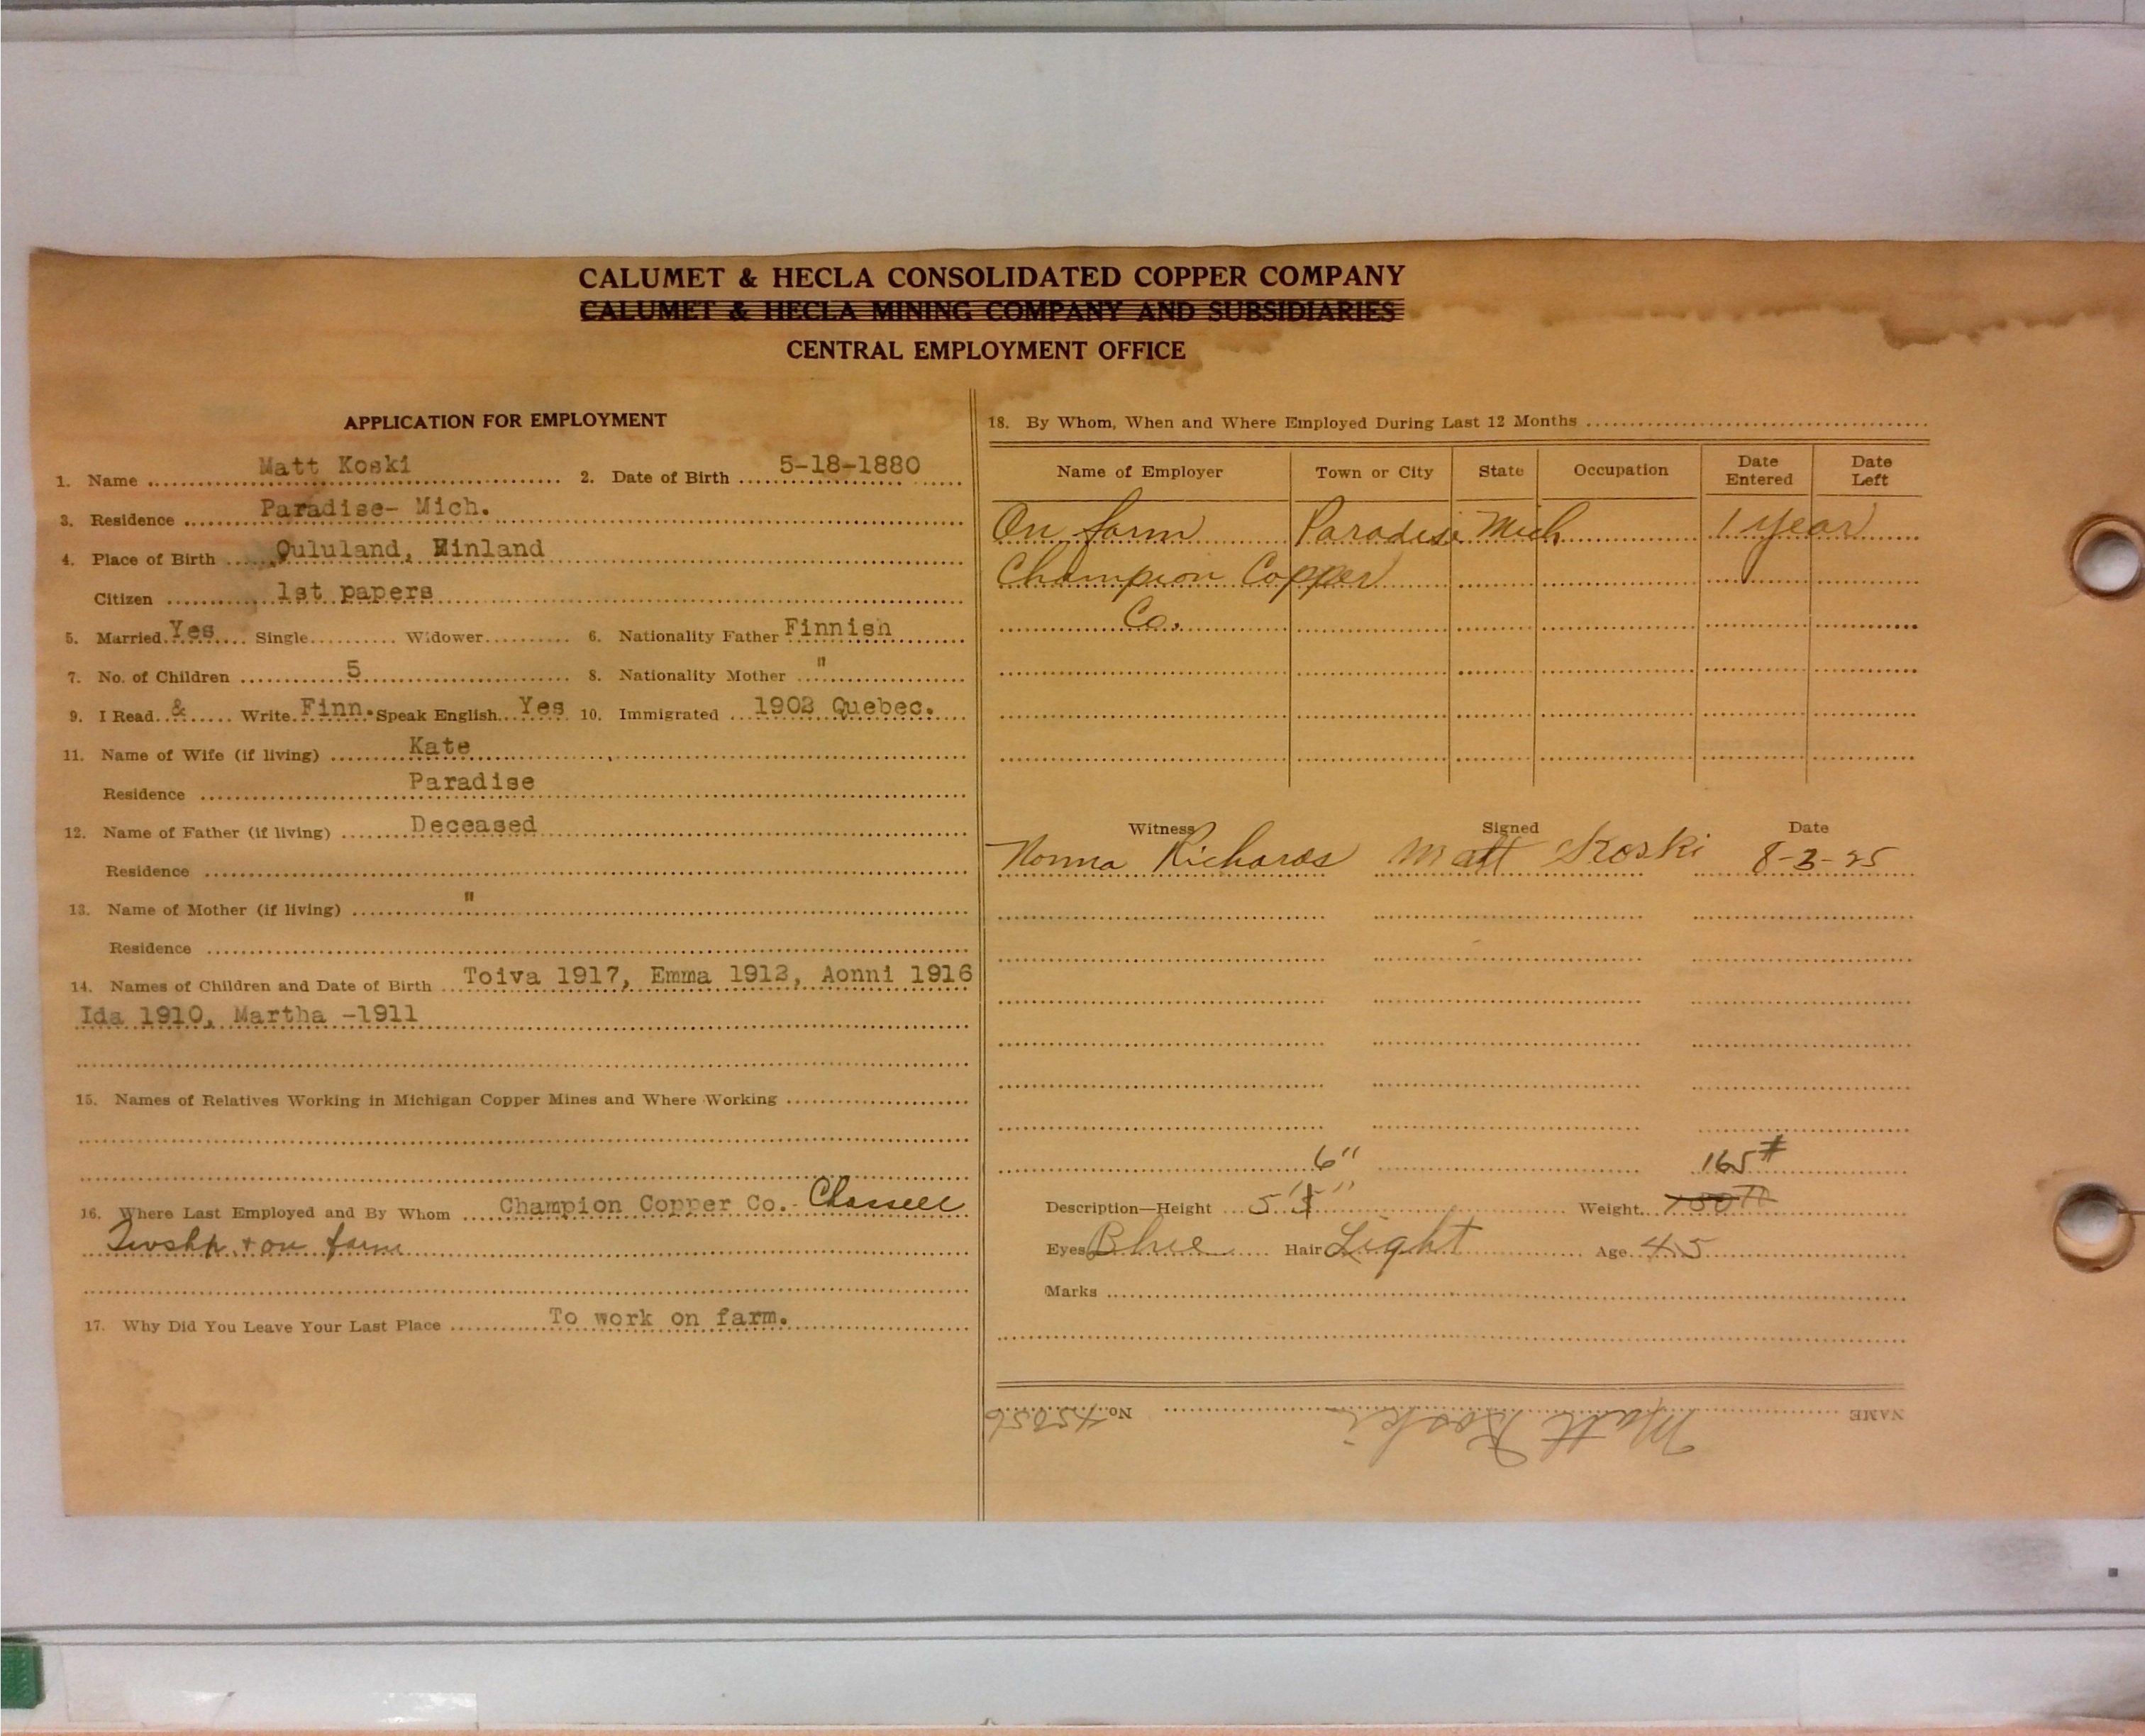 CALUMET & HECLA CONSOLIDATED COPPER COMPANY
CALUMET & HECLA MINING COMPANY AND SUBSIDIARIES
CENTRAL EMPLOYMENT OFFICE
APPLICATION FOR EMPLOYMENT
1. Name Matt Koski 2. Date of Birth 5-18-1880
3. Residence Paradise- Mich.
4. Place of Birth Oululand, Finland
Citizen 1st papers
5. Married Yes Single Widower 6. Nationality Father Finnish
7. No. of Children 5 8. Nationality Mother "
9. I Read & Write Finn. Speak English Yes 10. Immigrated 1902 Quebec.
11. Name of Wife (if living) Kate
Residence Paradise
12. Name of Father (if living) Deceased
Residence
13. Name of Mother (if living) "
Residence
14. Names of Children and Date of Birth Toiva 1917, Emma 1912, Aonni 1916
Ida 1910, Martha -1911
15. Names of Relatives Working in Michigan Copper Mines and Where Working
16. Where Last Employed and By Whom Champion Copper Co. Chassell
Twshp. + on farm
17. Why Did You Leave Your Last Place To work on farm.
18. By Whom, When and Where Employed During Last 12 Months
Name of Employer Town or City State Occupation Date Entered Date Left
On farm Paradise Mich 1 year
Champion Copper
Co.
Witness Signed Date
Norma Richards Matt Koski 8-3-25
6" 165#
Description—Height 5' 5" Weight 150#
Eyes Blue Hair Light Age 45
Marks
NAME Matt Koski No. 45056